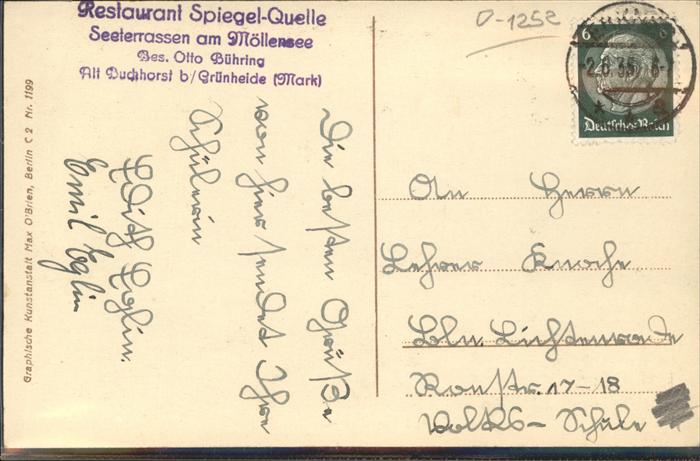 Restaurant Spiegel-Quelle
Seeterrassen am Möllensee
Bes. Otto Bühring
Alt Buchhorst b/Grünheide (Mark)
D-1252
6 6
-2.6.35
Deutsches Reich
Graphische Kunstanstalt Max O'Brien, Berlin C 2 Nr. 1199
Die besten Grüße
von hier sendet Ihre
Schülerin
Edith Eglin.
Emil Eglin
An Herrn
Lehrer Knoche
Bln. Lichtenrade
Roonstr. 17-18
Volks-Schule